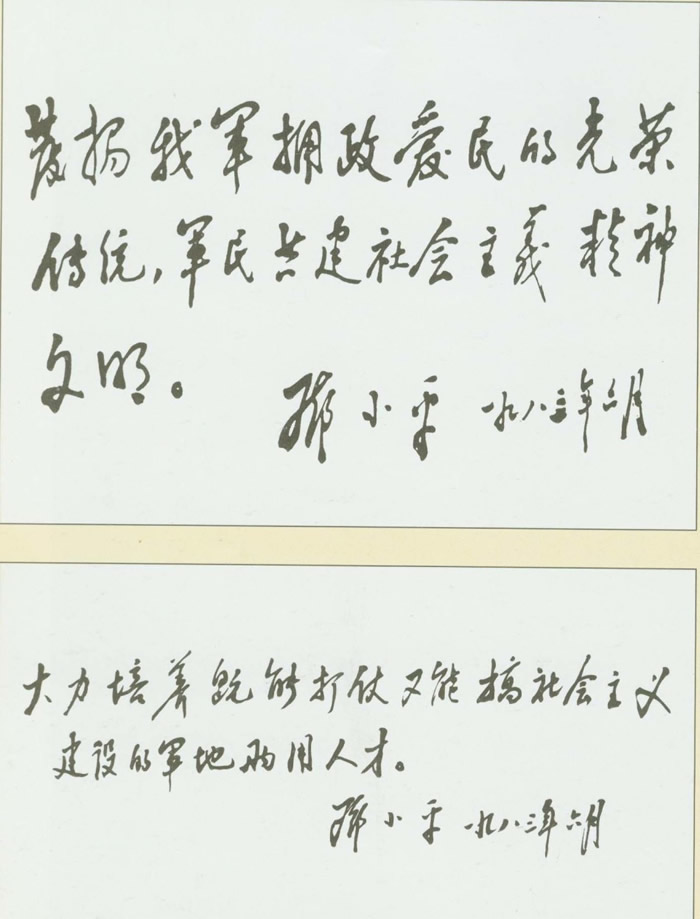 發扬我军拥政爱民的光荣
传统，军民共建社会主义精神
文明。
邓小平 一九八三年六月
大力培养既能打仗又能搞社会主义
建设的军地两用人才。
邓小平 一九八三年六月